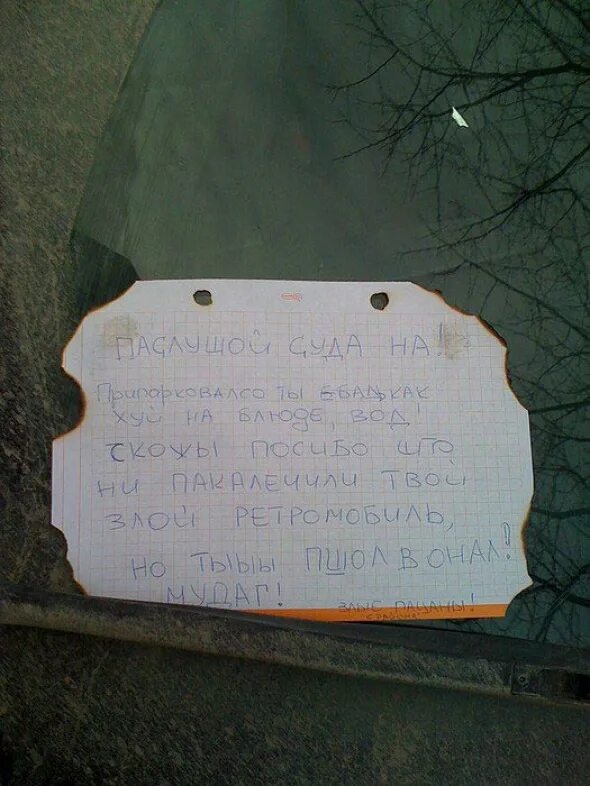 ПАСЛУШОЙ СУДА НА!
Припорковалсо ты ЕбатькАК
ХУЙ НА БЛЮДЕ, ВОД!
СКОЖЫ ПОСИБО ШТО
НИ ПАКАЛЕЧИЛИ ТВОЙ
ЗЛОЙ РЕТРОМОБИЛЬ,
НО ТЫЫЫ ПШОЛ В ОНАЛ!
МУДАГ!
ЗЛЫЕ ПАЦАНЫ!
С РАЙОНА